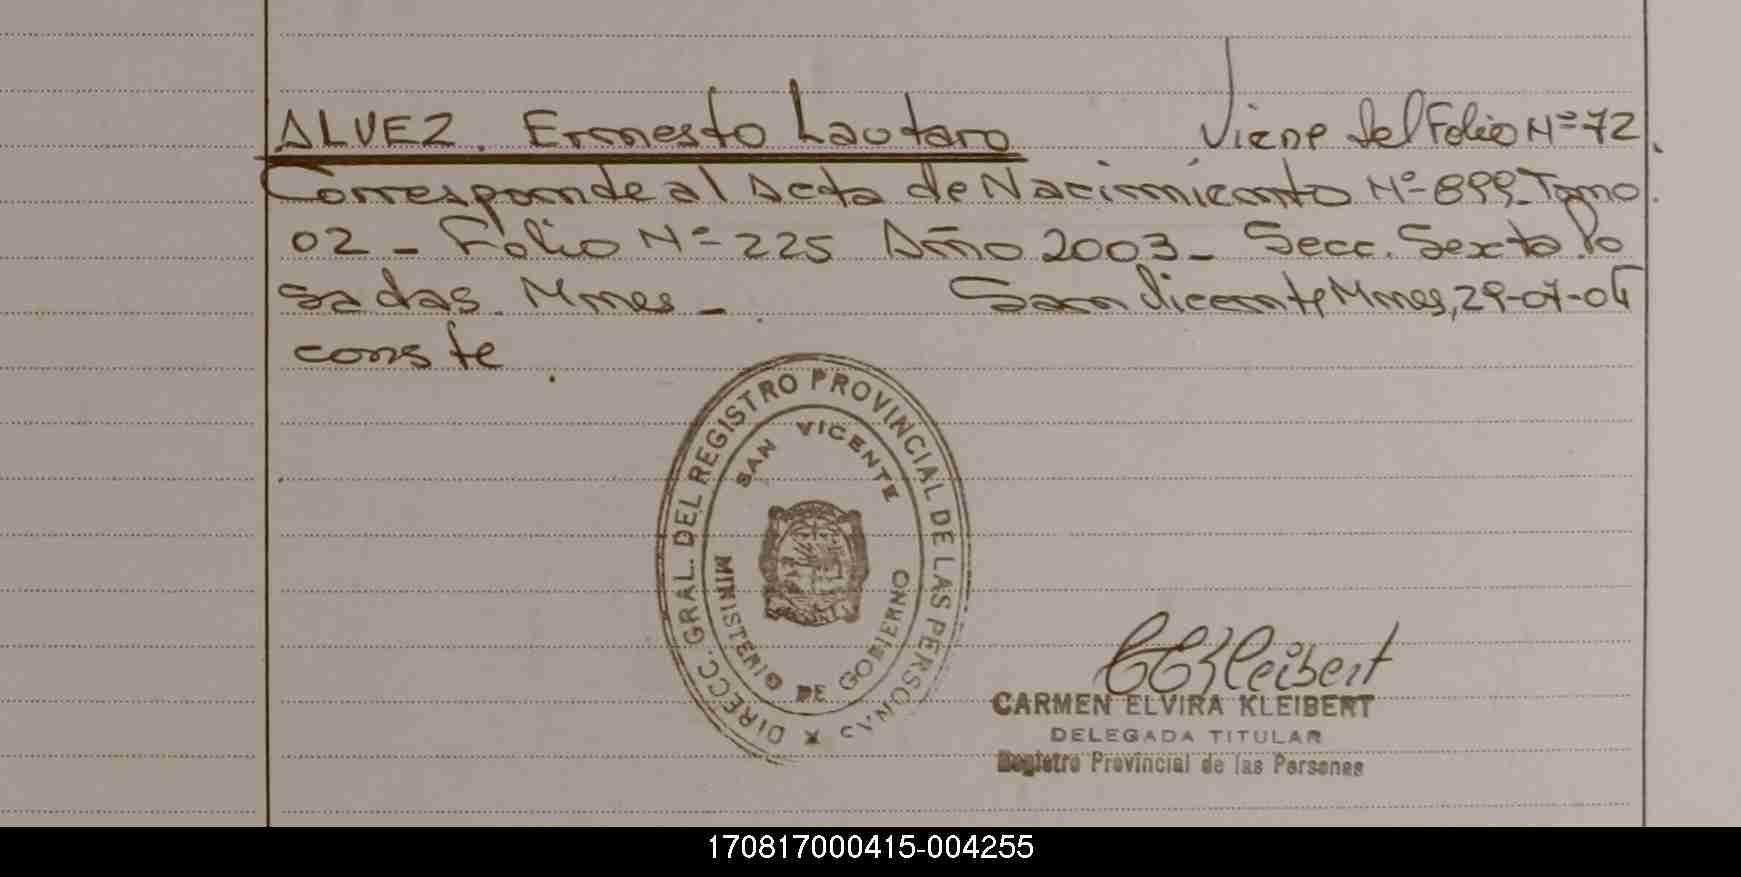 ALVEZ. Ernesto Lautaro Viene del Folio Nº 72.
Corresponde al Acta de Nacimiento Nº 899_Tomo.
02 - Folio Nº 225 Año 2003 - Secc. Sexta Po
sadas. Mnes -. San Vicente Mnes, 29-07-04
conste.
DIRECC. GRAL. DEL REGISTRO PROVINCIAL DE LAS PERSONAS
SAN VICENTE
MINISTERIO DE GOBIERNO
CEKleibert
CARMEN ELVIRA KLEIBERT
DELEGADA TITULAR
Registro Provincial de las Personas
170817000415-004255